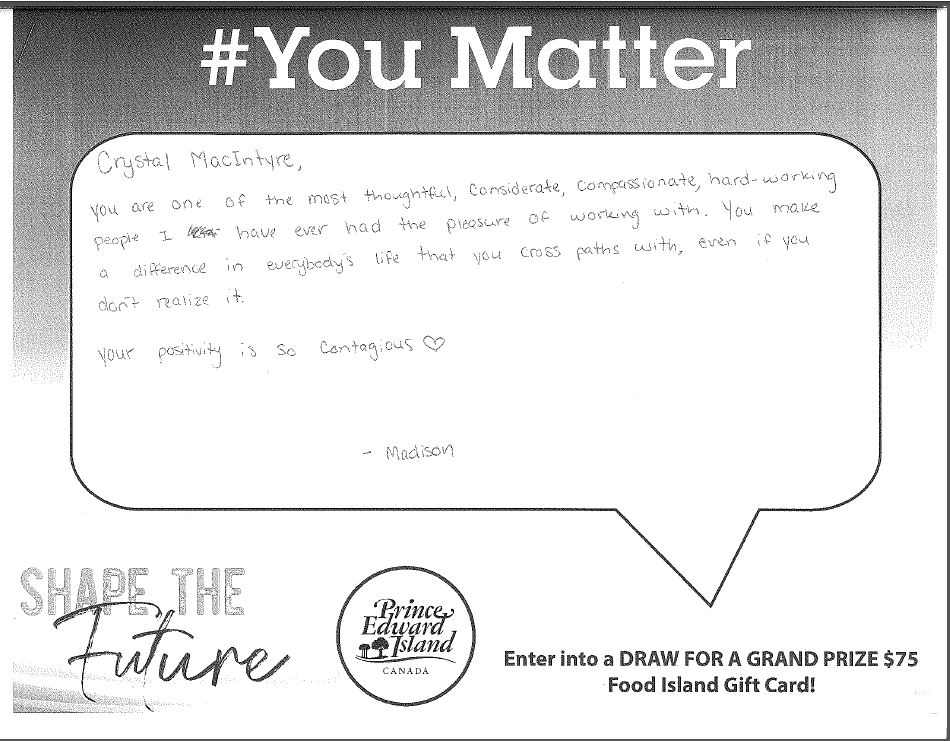 #You Matter
Crystal MacIntyre,
you are one of the most thoughtful, considerate, compassionate, hard-working
people I have ever had the pleasure of working with. You make
a difference in everybody's life that you cross paths with, even if you
don't realize it.
your positivity is so contagious ♡
- Madison
SHAPE THE
Future
Prince
Edward
Island
CANADA
Enter into a DRAW FOR A GRAND PRIZE $75
Food Island Gift Card!